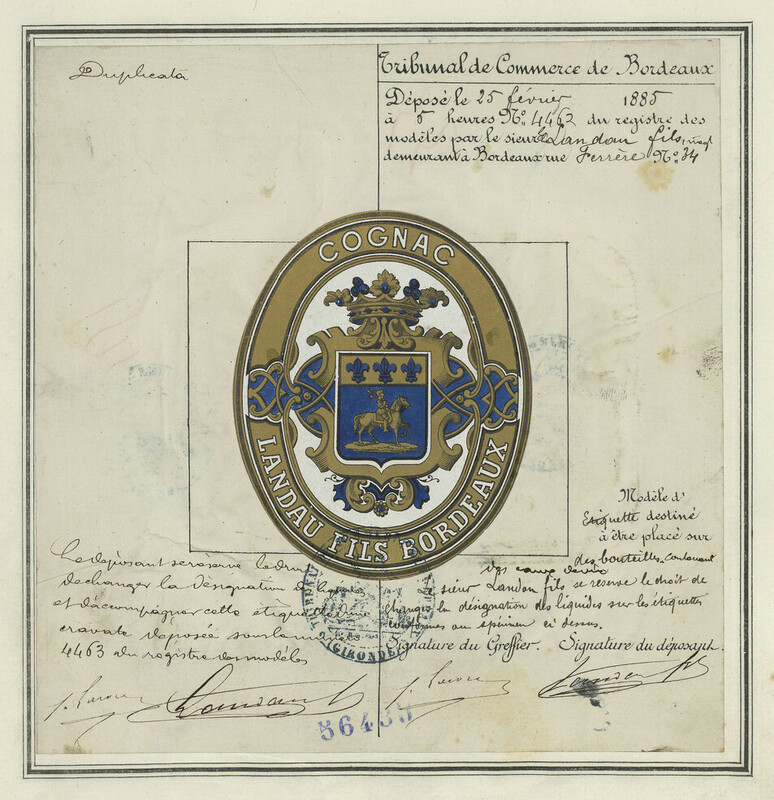 Duplicata
Tribunal de Commerce de Bordeaux
Déposé le 25 février 1885
à 5 heures No. 4462 du registre des
modèles par le sieur Landau fils, negt
demeurant à Bordeaux rue Ferrère No. 34
COGNAC
LANDAU FILS BORDEAUX
Modèle d'
Etiquette destiné
à être placé sur
des bouteilles contenant
des eaux de vie
Le déposant se réserve le droit
de changer la désignation des liquides
et d'accompagner cette étiquette d'une
cravate déposée sous le numéro
4463 du registre des modèles
sieur Landau fils se réserve le droit de
changer la désignation des liquides sur les étiquettes
conformes au spécimen ci dessus.
Signature du Greffier. Signature du déposant.
TRIBUNAL
(GIRONDE)
Landau fils
Landau fils